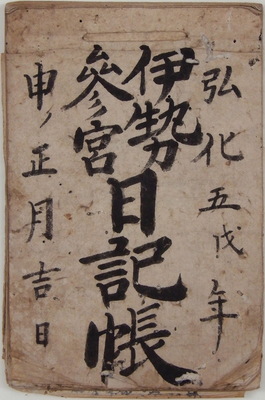 弘化五戊年
伊勢
参宮
日記帳
申ノ正月吉日